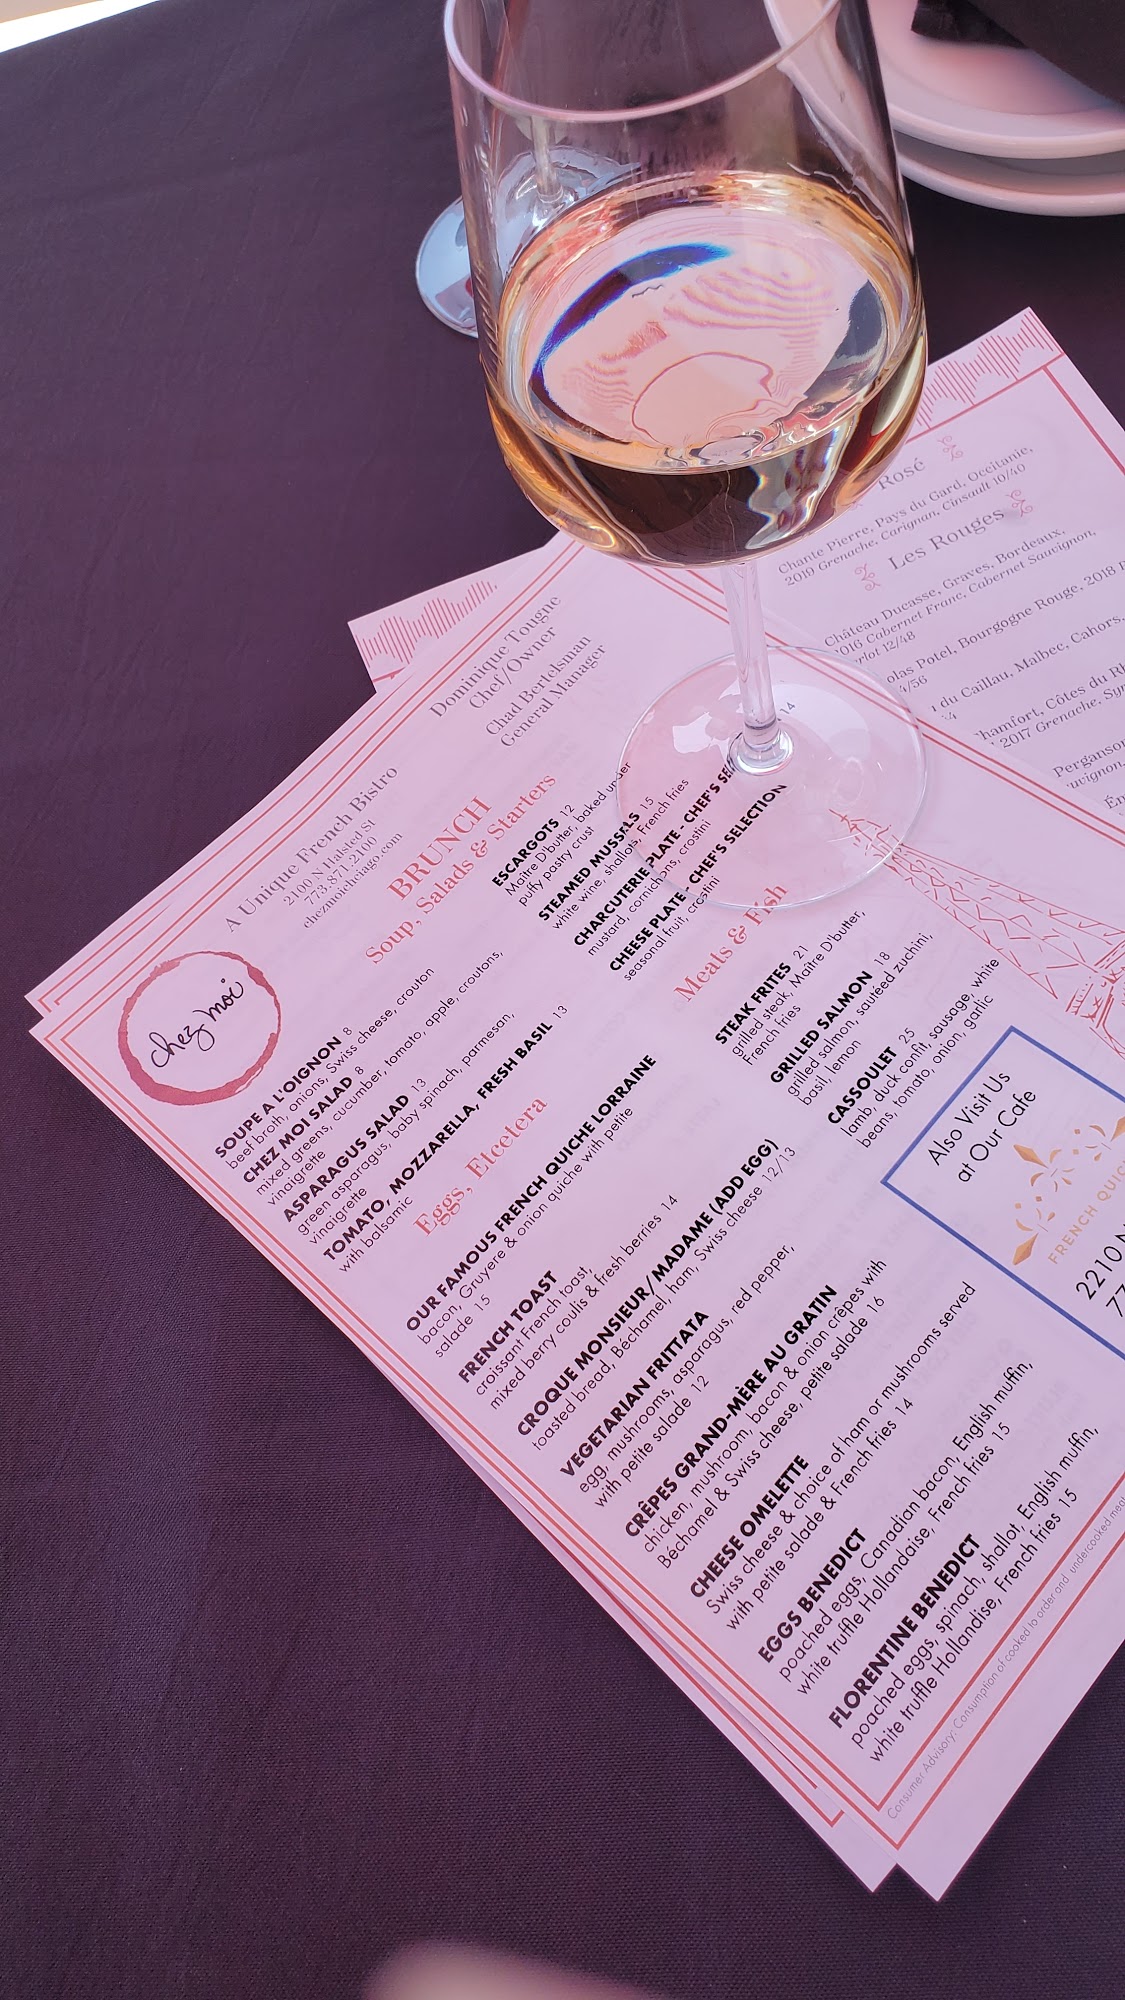 chez moi
A Unique French Bistro
2100 N Halsted St
773.871.2100
chezmoichciago.com
Dominique Tougne
Chef/Owner
Chad Bertelsman
General Manager
BRUNCH
Soup, Salads & Starters
SOUPE A L'OIGNON 8
beef broth, onions, Swiss cheese, crouton
CHEZ MOI SALAD 8
mixed greens, cucumber, tomato, apple, croutons,
vinaigrette
ASPARAGUS SALAD 13
green asparagus, baby spinach, parmesan,
vinaigrette
TOMATO, MOZZARELLA, FRESH BASIL 13
with balsamic
ESCARGOTS 12
Maitre D'butter, baked under
puffy pastry crust
STEAMED MUSSELS 15
white wine, shallots, French fries
CHARCUTERIE PLATE - CHEF'S
mustard, cornichons, crostini
14
CHEESE PLATE - CHEF'S SELECTION
seasonal fruit, crostini
Eggs, Etcetera
OUR FAMOUS FRENCH QUICHE LORRAINE
bacon, Gruyere & onion quiche with petite
salade 15
FRENCH TOAST
croissant French toast,
mixed berry coulis & fresh berries 14
CROQUE MONSIEUR/MADAME (ADD EGG)
toasted bread, Béchamel, ham, Swiss cheese 12/13
VEGETARIAN FRITTATA
egg, mushrooms, asparagus, red pepper,
with petite salade 12
CRÊPES GRAND-MÈRE AU GRATIN
chicken, mushroom, bacon & onion crêpes with
Béchamel & Swiss cheese, petite salade 16
CHEESE OMELETTE
Swiss cheese & choice of ham or mushrooms served
with petite salade & French fries 14
EGGS BENEDICT
poached eggs, Canadian bacon, English muffin,
white truffle Hollandaise, French fries 15
FLORENTINE BENEDICT
poached eggs, spinach, shallot, English muffin,
white truffle Hollandise, French fries 15
Meats & Fish
STEAK FRITES 21
grilled steak, Maitre D'butter,
French fries
GRILLED SALMON 18
grilled salmon, sautéed zuchini,
basil, lemon
CASSOULET 25
lamb, duck confit, sausage, white
beans, tomato, onion, garlic
Also Visit Us
at Our Cafe
FRENCH QUIC
2210 N
77
Consumer Advisory: Consumption of cooked to order and undercooked mea
Rosé
Chante Pierre, Pays du Gard, Occitanie,
2019 Grenache, Carignan, Cinsault 10/40
Les Rouges
Château Ducasse, Graves, Bordeaux,
2016 Cabernet Franc, Cabernet Sauvignon,
12/48
olas Potel, Bourgogne Rouge, 2018
4/56
du Caillau, Malbec, Cahors,
hamfort, Côtes du Rh
2017 Grenache, Syr
Perganson
uvignon,
Ém